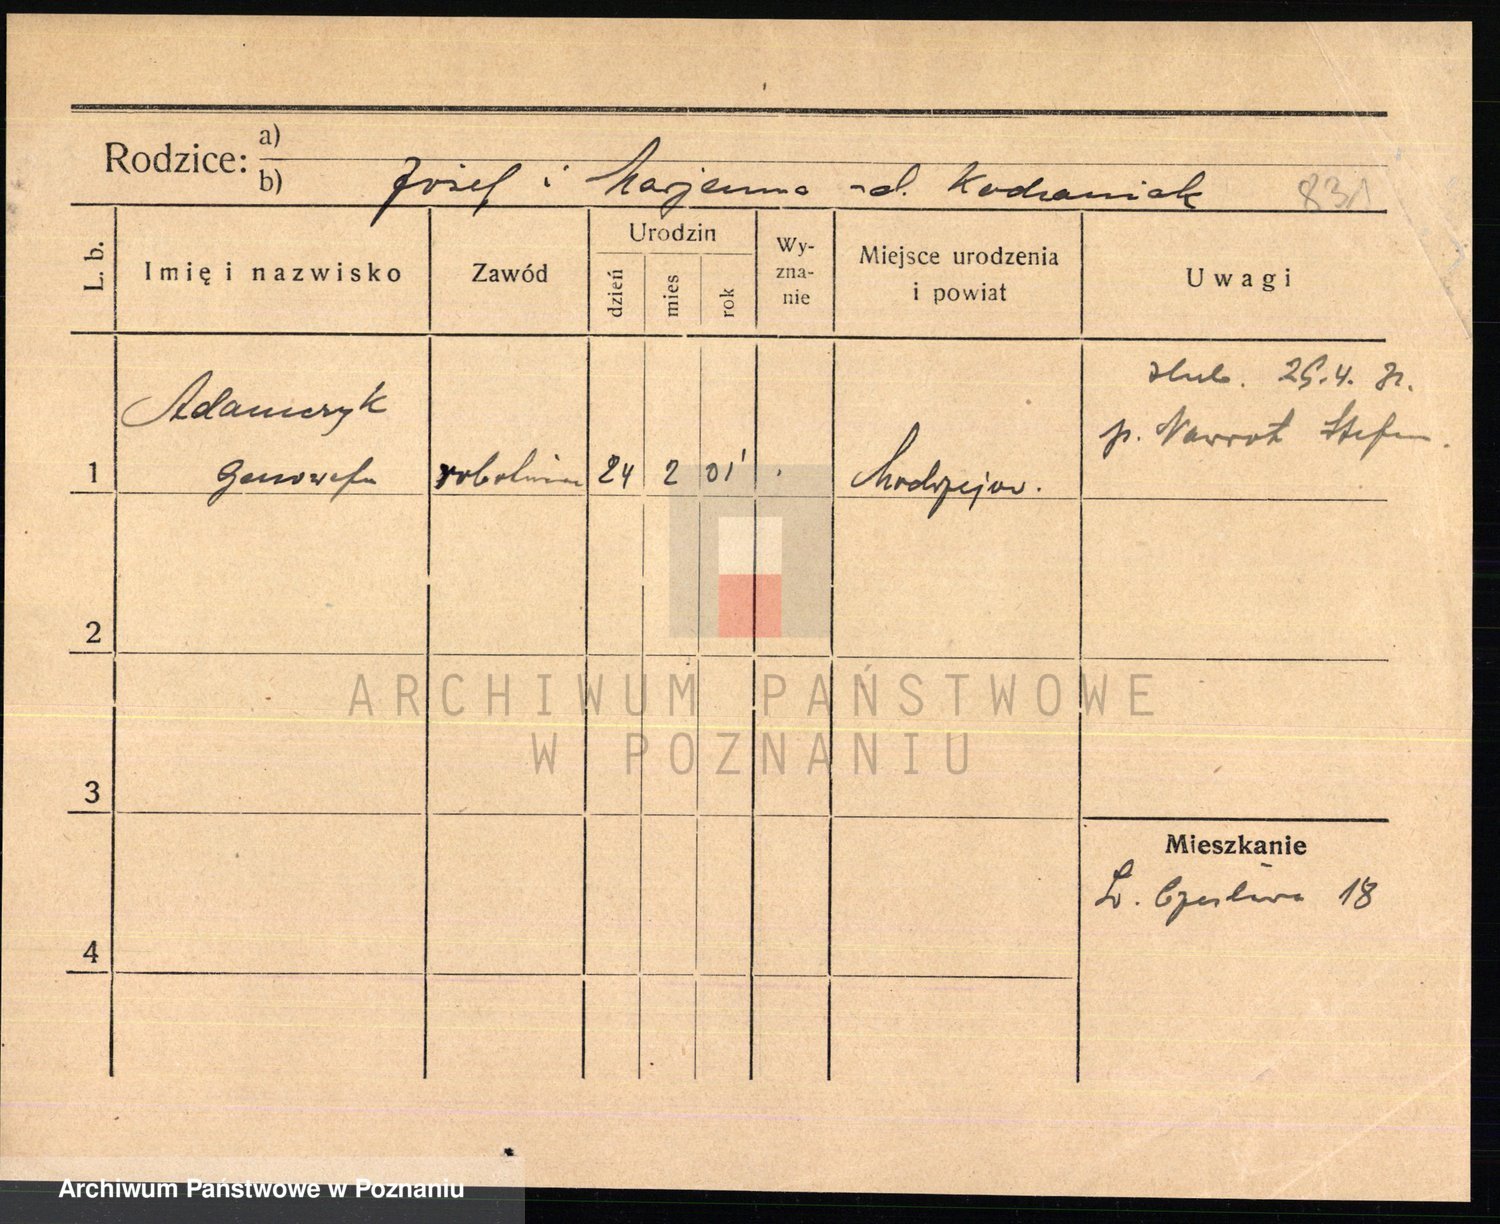 Rodzice: a)
b) Józef i Marjanna -d. Kodraniak 831
L. b. Imię i nazwisko Zawód Urodzin dzień mies rok Wy-zna-nie Miejsce urodzenia i powiat Uwagi
ślub. 25.4.
Adamczyk p. Nawrot Stefan.
1 Genowefa robotnica 24 2 01 Modrzejow.
2
ARCHIWUM PAŃSTWOWE
W POZNANIU
3
Mieszkanie
18
4
Archiwum Państwowe w Poznaniu